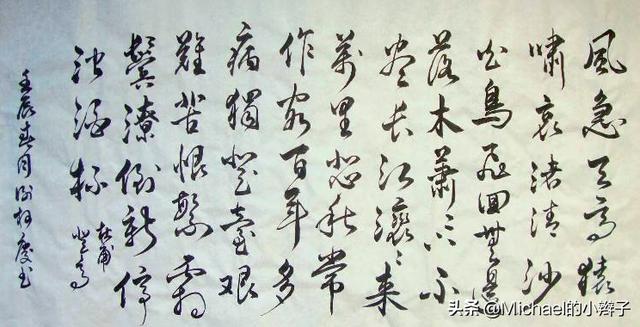 風急天高猿
嘯哀渚清沙
白鳥飛回無邊
落木蕭〻下不
尽長江滚〻来
萬里悲秋常
作客百年多
病獨登臺艱
難苦恨繁霜
鬢潦倒新停
浊酒杯
杜甫
登高
壬辰春月
头条@Michael的小辫子